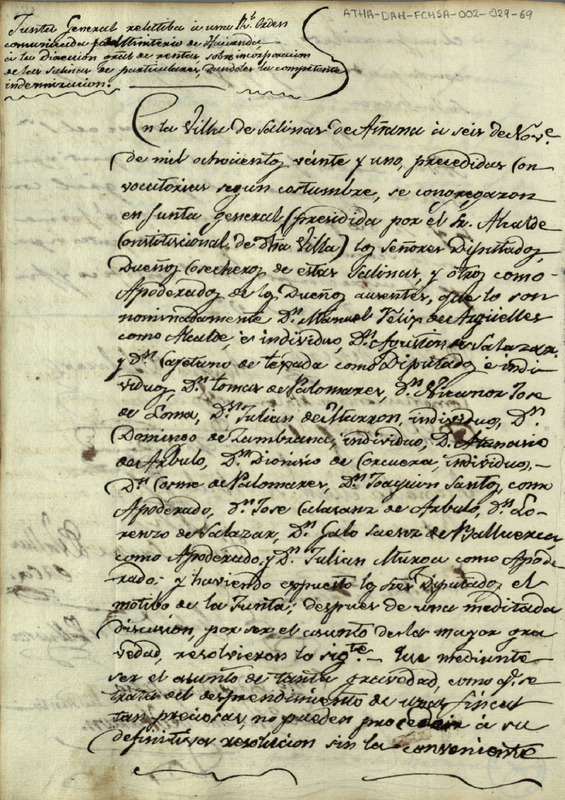 ATHA-DAH-FCHSA-002-029-69
Junta General relatiba à una Rl. orden
comunicada por el Ministerio de Hacienda
à la Direccion gral de rentas sobre incorporacion
de las Salinas de particulares, dandoles la competente
indemnizacion.
En la Villa de Salinas de Añana à seis de Nove.
de mil ochocientos veinte y uno, precedidas con
vocatorias segun costumbre, se congregaron
en Junta general (presidida por el Sr. Alcalde
Constitucional de dha Villa) los señores Diputados,
Dueños Cosecheros de estas Salinas, y otros como
Apoderados de los Dueños ausentes, que lo son
nominadamente Dn. Manuel Felix de Arguelles
como Alcalde, è individuo, Dn. Agustin de Salazar,
y Dn. Cayetano de tejada como Diputados è indi
viduos, Dn. tomas de Palomares, Dn. Nicanor Jose
de Loma, Dn. Julian de Marron, individuo, Dn.
Domingo de Zambrana, individuo, D. Atanasio
de Arbulo, Dn. Dionisio de Corcuera, individuos,-
Dn. Cosme de Palomares, Dn. Joaquin Santos, como
Apoderado, Dn. Jose Calasanz de Arbulo, Dn. Lo-
renzo de Salazar, Dn. Galo Saenz de Valluerca
como Apoderado, y Dn. Julian Muroa como Apode-
rado: y haviendo expuesto los Sres Diputados el
motibo de la Junta; despues de una meditada
discusion, por ser el asunto de la mayor gra
vedad, resolvieron lo sigte.- Que mediante
ser el asunto de tanta gravedad, como qe. se
trata del desprendimiento de unas fincas
tan preciosas, no pueden proceder à su
definitiva resolucion sin la conveniente